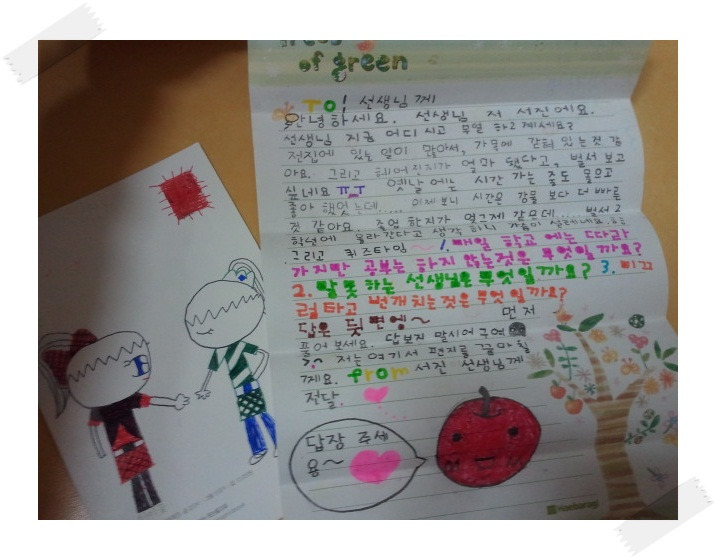 of green
To! 선생님께
안녕하세요. 선생님 저 서진에요.
선생님 지금 어디시고 무얼 하고 계세요?
전집에 있는 일이 많아서, 가목에 갇혀 있는것 같
아요. 그리고 헤어진지가 얼마 됐다고, 벌써 보고
싶네요 ㅠㅠ 옛날에는 시간 가는 줄도 모르고
좋아 했었는데..... 이제보니 시간은 강물 보다 더 빠른
것 같아요. 졸업 하지가 엊그제 같은데.... 벌써 2
학년에 올라간다고 생각 하니 가슴이
그리고 퀴즈타임~ 1. 매일 학교 에는 따라
가지만 공부는 하지 않는것은 무엇일까요?
2. 말 못하는 선생님은 무엇일까요? 3. 미끄
럼 타고 번개 치는것은 무엇일까요?
답은 뒷면에~ 먼저
풀어 보세요. 답보지 말시어구여
저는 여기서 편지를 그만 마칠
께요. from 서진 선생님께
전달.
답장 주세
용~